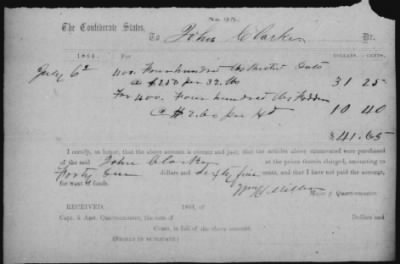 No. 25.
The Confederate States,
To John Clarken Dr.
1864. For DOLLARS. CENTS.
July 6th 400. Four hundred lbs Oats
@ $2.50 per 32 lbs 31 25
For 400. Four hundred lbs Fodder
@ $2.60 per 10 40
$41.65
I certify, on honor, that the above account is correct and just; that the articles above enumerated were purchased
of the said John Clarken at the prices therein charged, amounting to
Forty One dollars and sixty five cents, and that I have not paid the account,
for want of funds.
Wm H. Miller
Major & Quartermaster.
RECEIVED, 186 , of
Capt. & Asst. Quartermaster, the sum of Dollars and
Cents, in full of the above account.
(SIGNED IN DUPLICATE.)